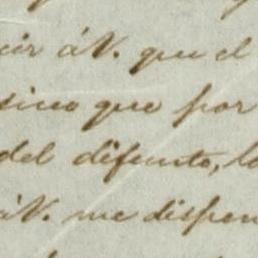 cir á V. que el
sino que por
del difunto, lo
á V. me dispen